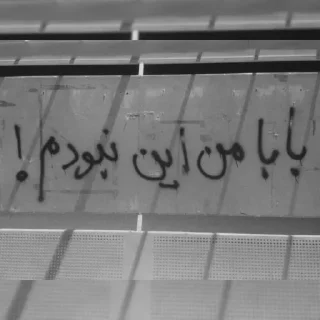 بابا من این نبودم !